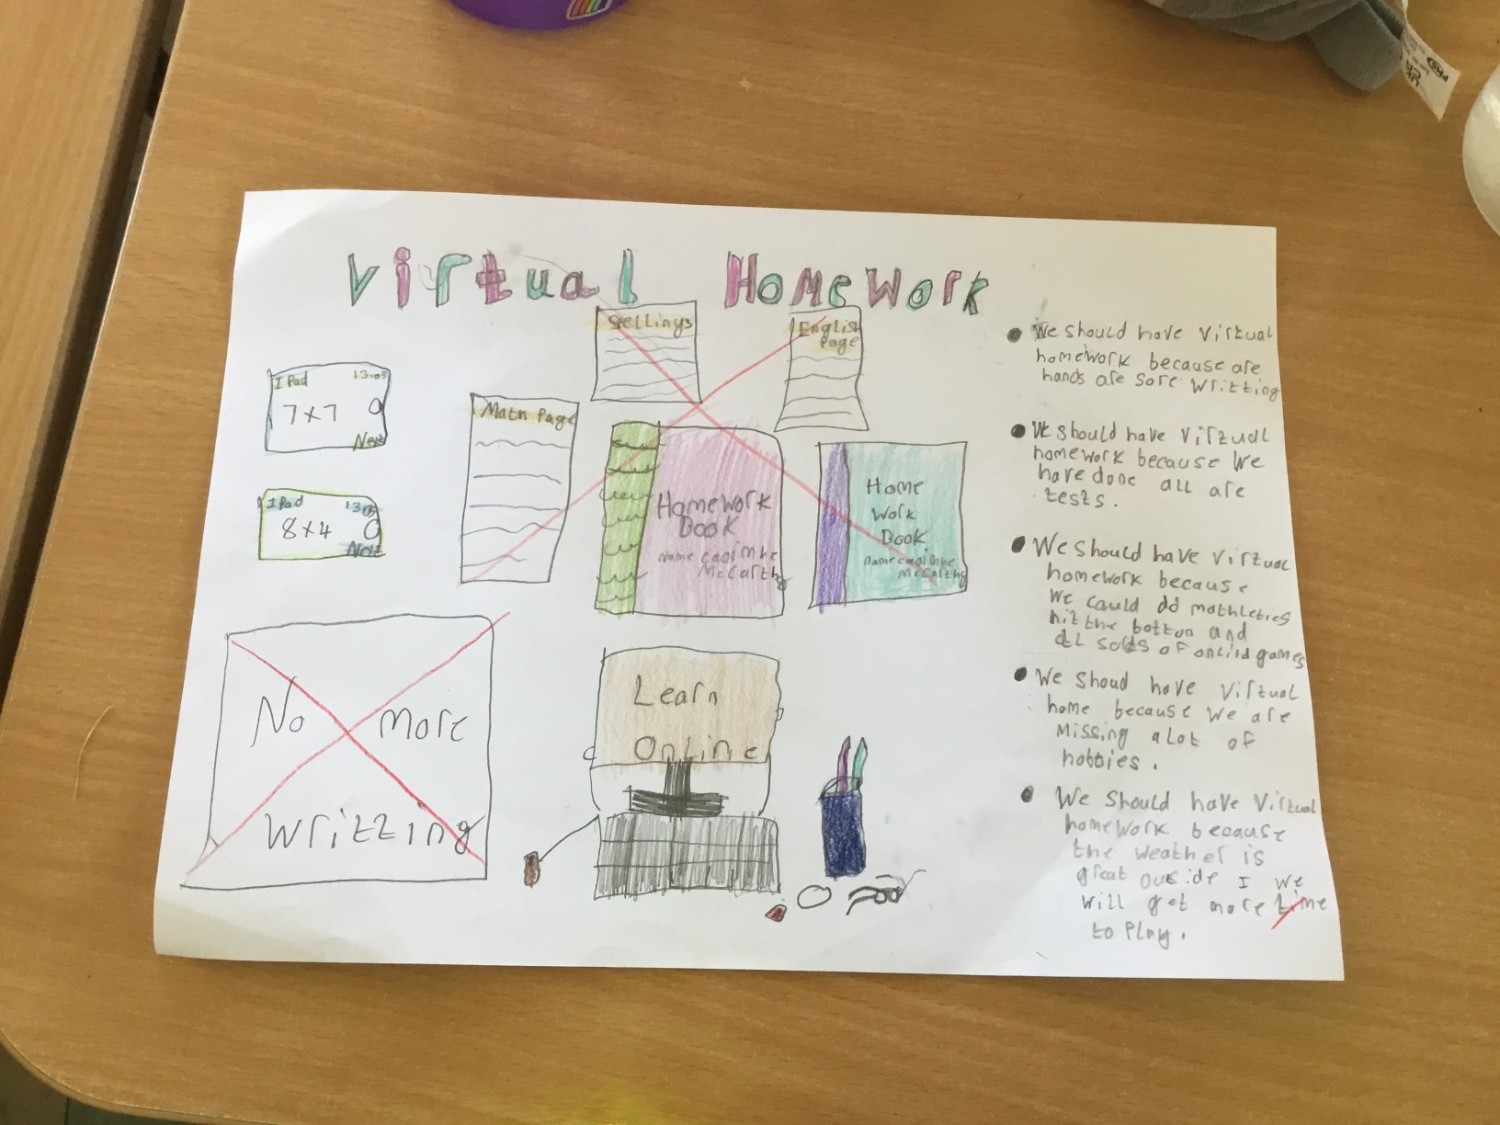 Virtual Homework
Spellings
English
Page
Math Page
I Pad 13:05
7x7
Next
I Pad 13:05
8x4
Next
Homework
Book
Name caoimhe
McCarthy
Home
Work
Book
Name caoimhe
McCarthy
No more
writting
Learn
Online
We should have Virtual
homework because are
hands are sore writting
We should have Virtual
homework because We
have done all are
tests.
We should have Virtual
homework because
We could do mathletics
hit the botton and
all sorts of games
We shoud have Virtual
home because we are
missing alot of
hobbies.
We should have Virtual
homework because
the weather is
great outside I we
will get more time
to play.